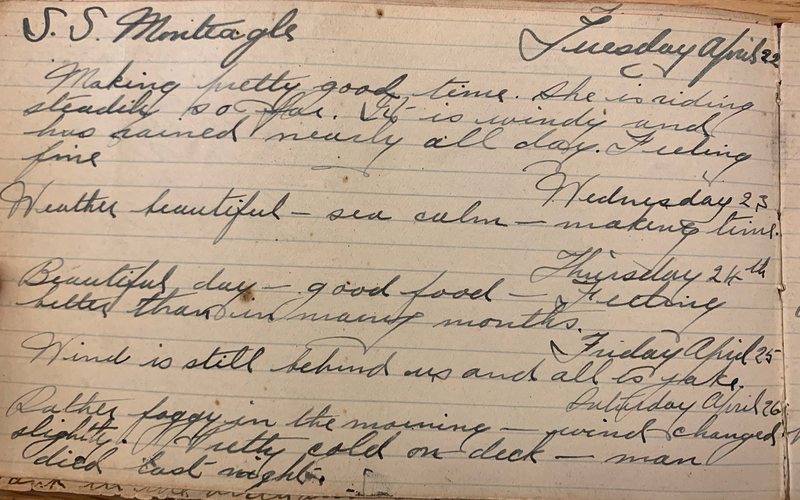 S. S. Monteagle
Tuesday April 22
Making pretty good time. She is riding
steadily so far. It is windy and
has rained nearly all day. Feeling
fine
Wednesday 23
Weather beautiful – sea calm – making time.
Thursday 24th
Beautiful day – good food – Feeling
better than in many months.
Friday April 25
Wind is still behind us and all is jake.
Saturday April 26
Rather foggy in the morning – wind changed
slightly. Pretty cold on deck – man
died last night.